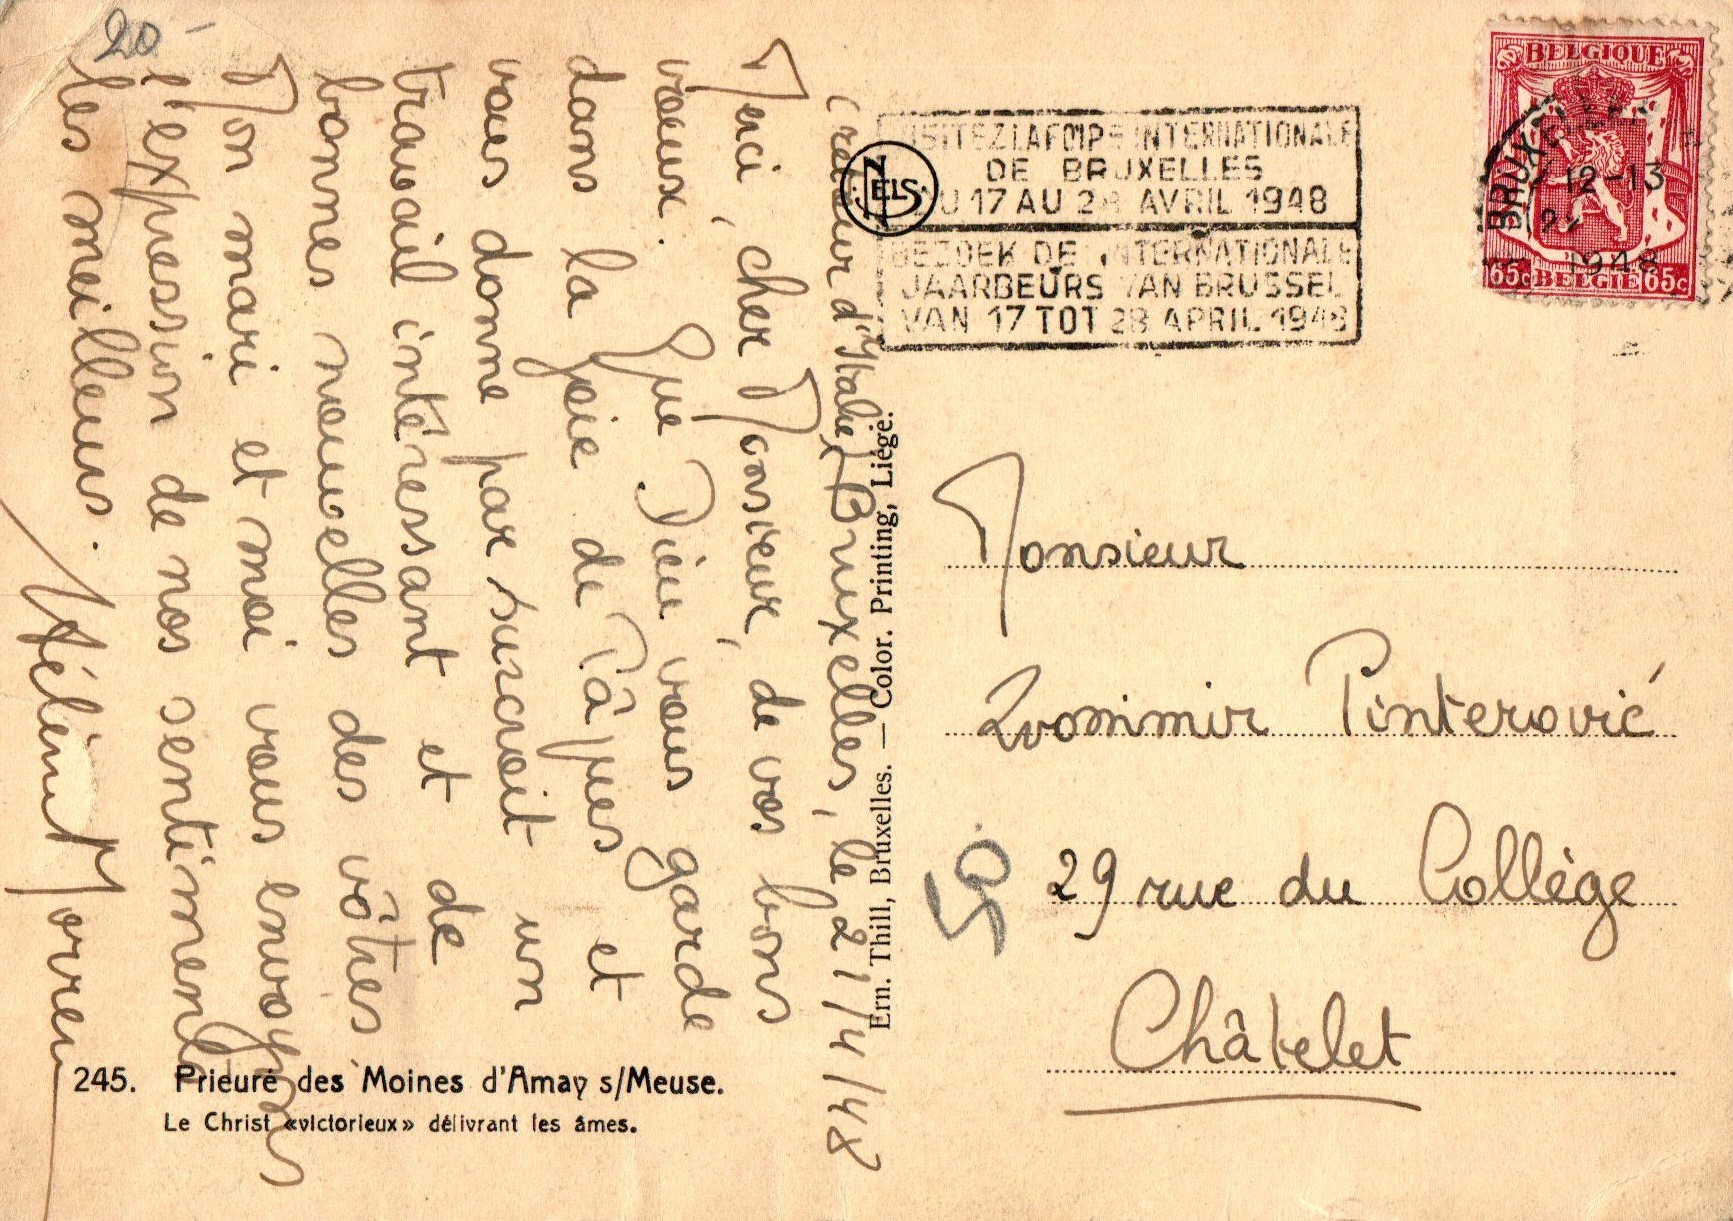 20 -
(retour d'Italie) Bruxelles, le 21/4/48
Merci, cher Monsieur, de vos bons
vœux. Que Dieu vous garde
dans la joie de Pâques et
vous donne par surcroit un
travail intéressant et de
bonnes nouvelles des vôtres.
Mon mari et moi vous envoyons
l'expression de nos sentiments
les meilleurs.
245. Prieuré des Moines d'Amay s/Meuse.
Le Christ «victorieux» délivrant les âmes.
Ern. Thill, Bruxelles. — Color. Printing, Liége.
NELS
VISITEZ LA FOIRE INTERNATIONALE
DE BRUXELLES
DU 17 AU 28 AVRIL 1948
BEZOEK DE INTERNATIONALE
JAARBEURS VAN BRUSSEL
VAN 17 TOT 28 APRIL 1948
BELGIQUE
65c BELGIE 65c
12-13
1948
Monsieur
Zvonimir Pinterović
50
29 rue du Collège
Châtelet